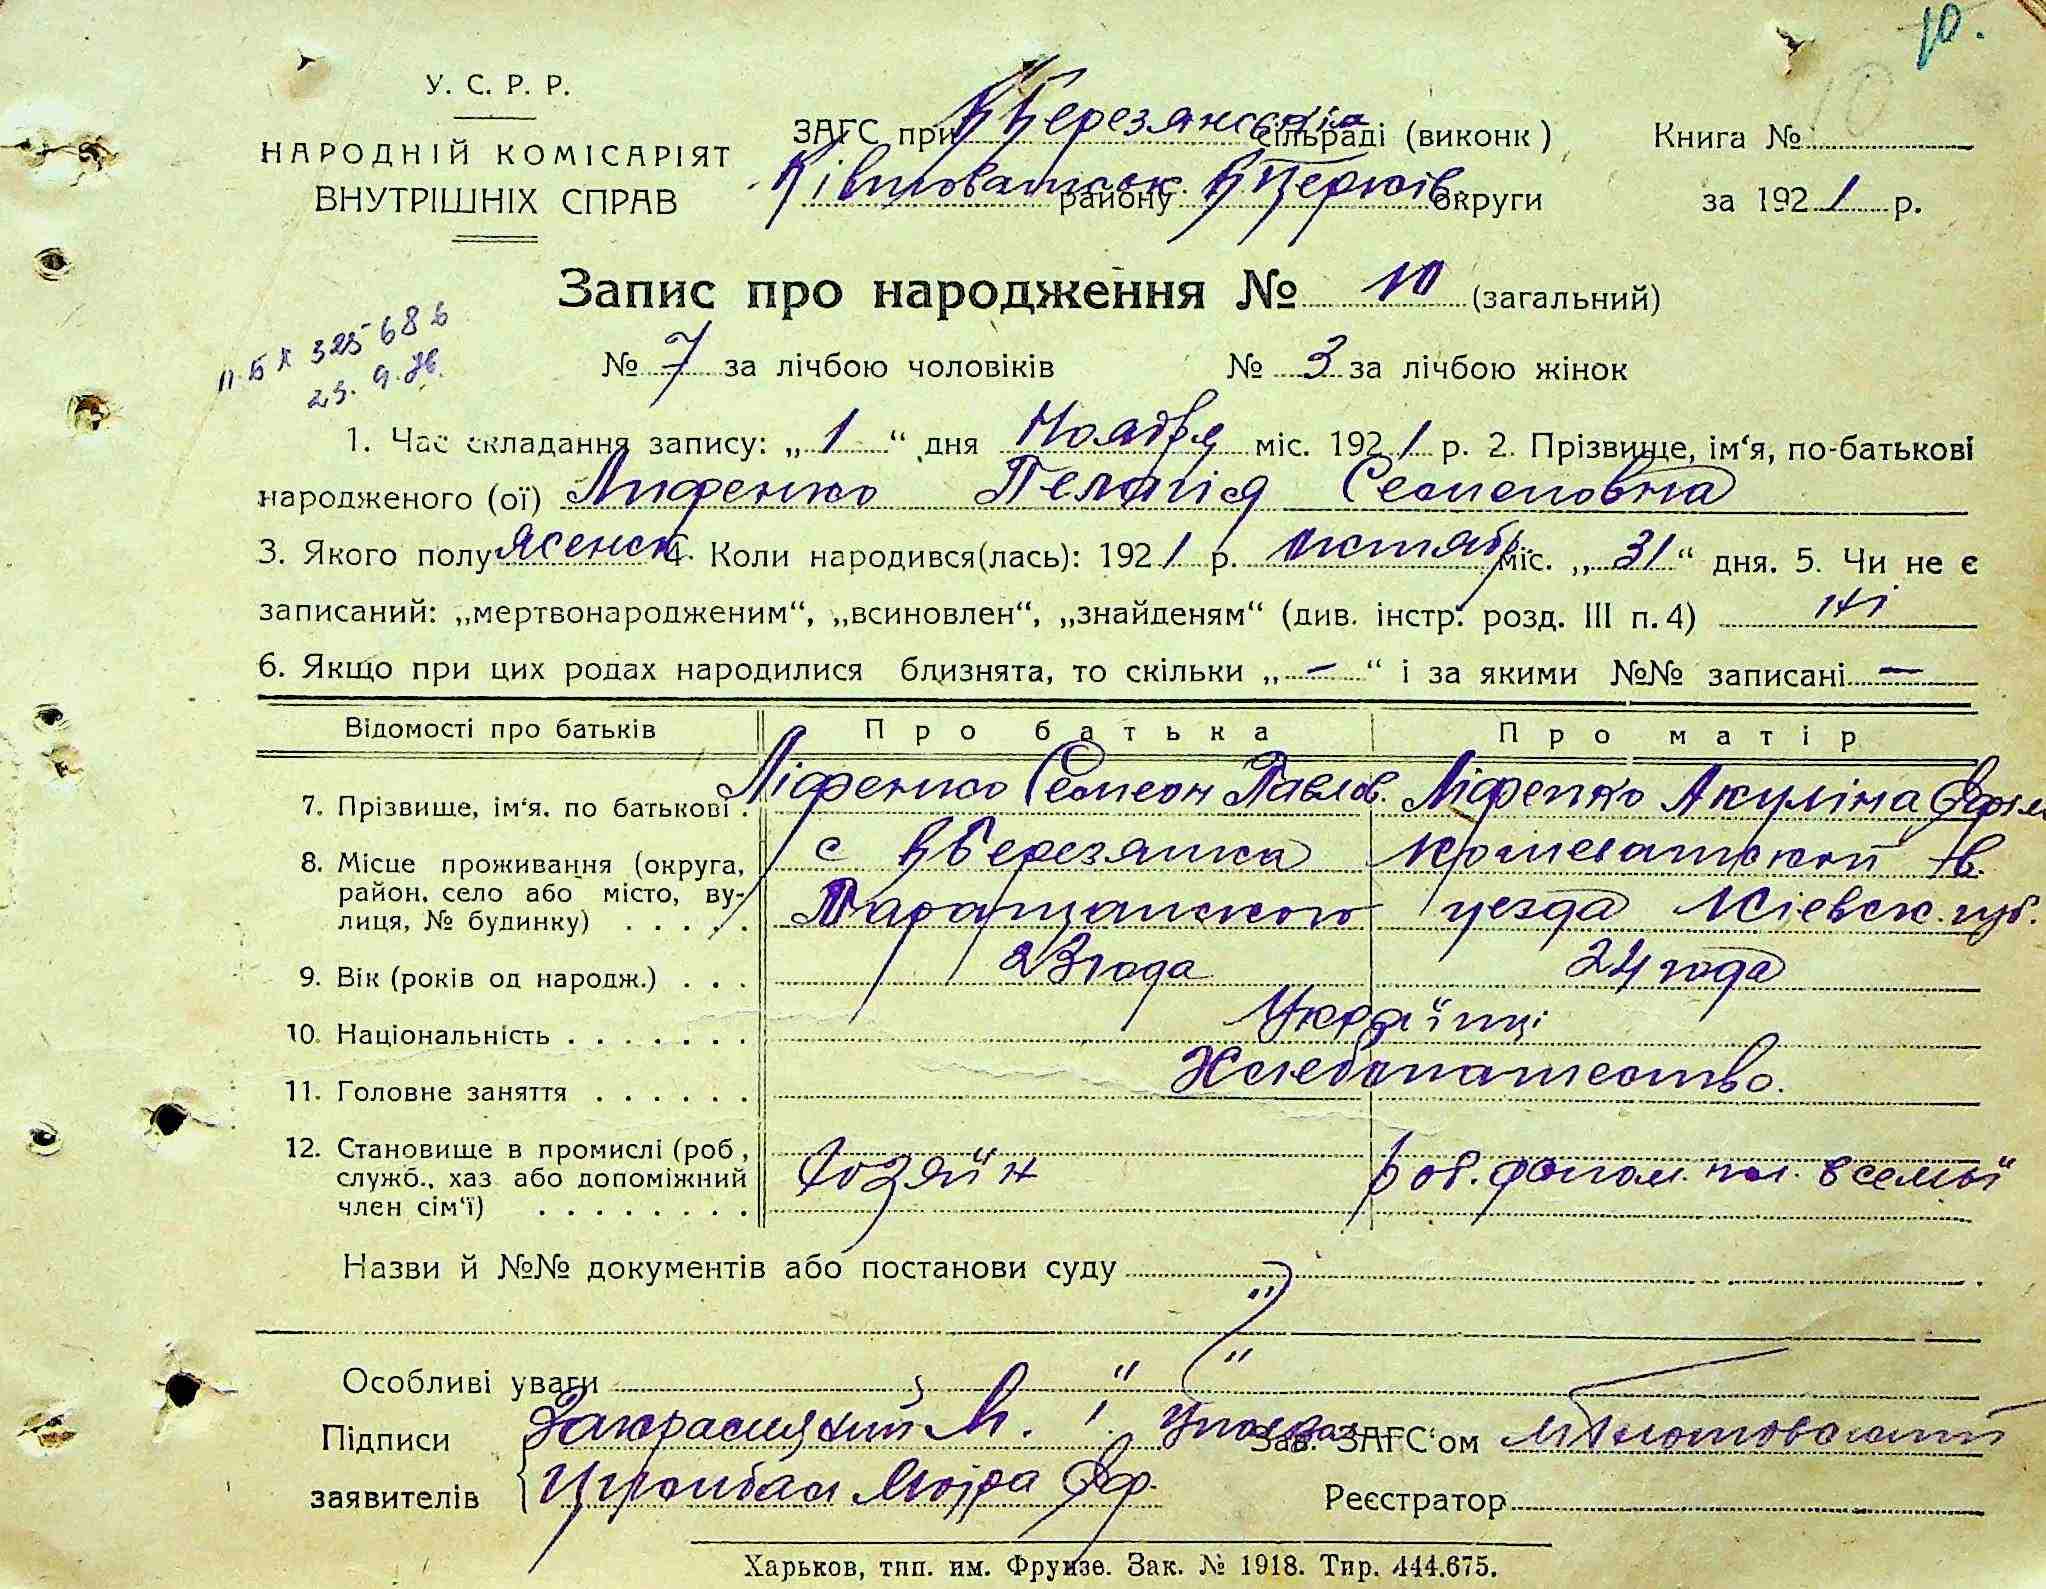 10.
У. С. Р. Р.
НАРОДНІЙ КОМІСАРІЯТ
ВНУТРІШНІХ СПРАВ
ЗАГС при ВБерезянській сільраді (виконк)
Ківшоватськ. району БЦерків. округи
Книга № 10
за 1921 р.
Запис про народження № 10 (загальний)
№ 7 за лічбою чоловіків № 3 за лічбою жінок
325686
23. 9.
1. Час складання запису: „1“ дня Ноября міс. 1921 р. 2. Прізвище, ім‘я, по-батькові
народженого (ої) Лифенко Пелагія Семеновна
3. Якого полу женск. 4. Коли народився(лась): 1921 р. октябр. міс. „31“ дня. 5. Чи не є
записаний: „мертвонародженим“, „всиновлен“, „знайденям“ (див. інстр. розд. III п. 4) ні
6. Якщо при цих родах народилися близнята, то скільки „-“ і за якими №№ записані —
Відомості про батьків Про батька Про матір
7. Прізвище, ім‘я, по батькові. Ліфенко Семеон Павлов. Ліфенко Акуліна
8. Місце проживання (округа, район, село або місто, вулиця, № будинку) с ВБерезянка
Таращанского уезда Кіевск. губ.
9. Вік (років од народж.) 23 года 24 года
10. Національність Українці
11. Головне заняття Хлебопашество.
12. Становище в промислі (роб, служб., хаз або допоміжний член сім‘ї) Хозяйн в семьї
Назви й №№ документів або постанови суду
Особливі уваги
Підписи Закрасицкий М. Зав. ЗАГС‘ом
заявителів Реєстратор
Харьков, тип. им. Фрунзе. Зак. № 1918. Тир. 444.675.